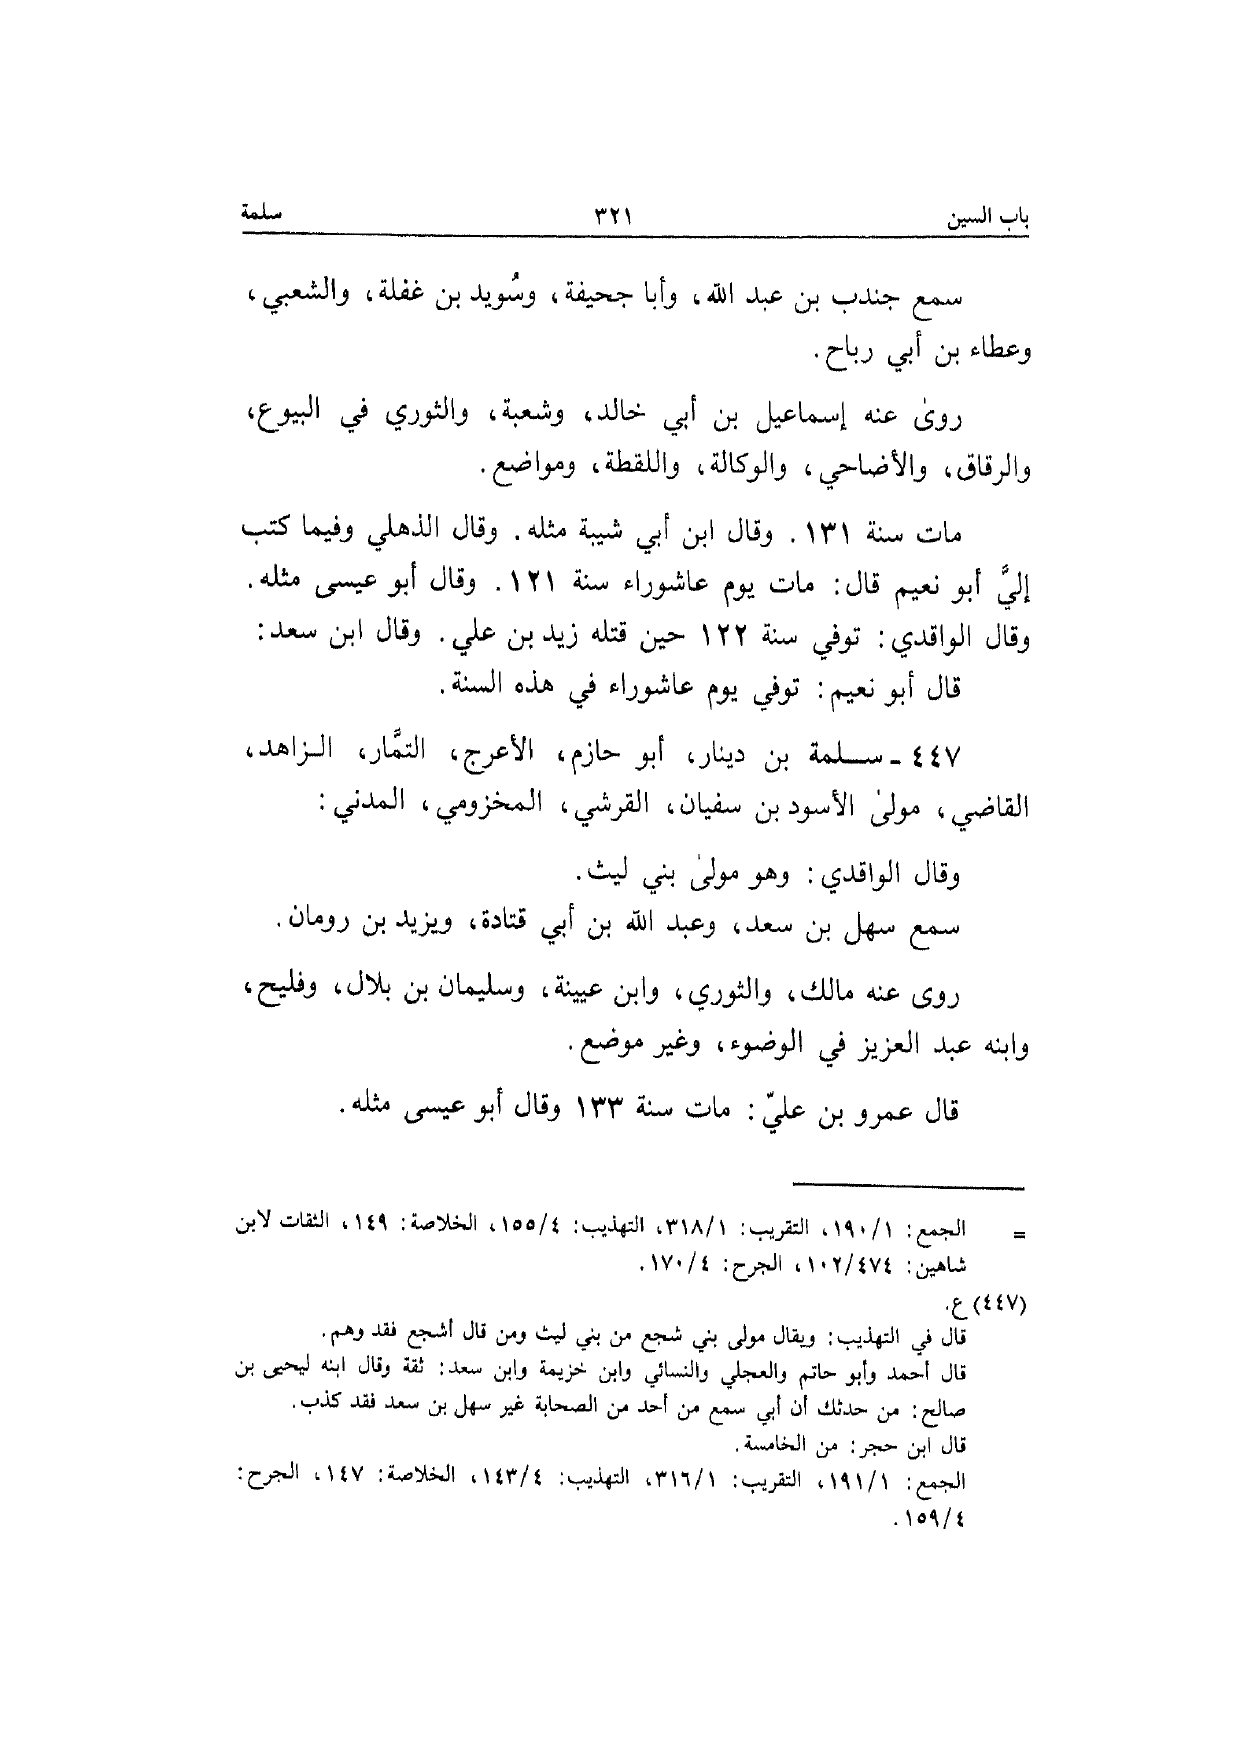 باب السين ٣٢١ سلمة
سمع جندب بن عبد الله، وأبا جحيفة، وسُويد بن غفلة، والشعبي،
وعطاء بن أبي رباح.
روىٰ عنه إسماعيل بن أبي خالد، وشعبة، والثوري في البيوع،
والرقاق، والأضاحي، والوكالة، واللقطة، ومواضع.
مات سنة ١٣١. وقال ابن أبي شيبة مثله. وقال الذهلي وفيما كتب
إليَّ أبو نعيم قال: مات يوم عاشوراء سنة ١٢١. وقال أبو عيسى مثله.
وقال الواقدي: توفي سنة ١٢٢ حين قتله زيد بن علي. وقال ابن سعد:
قال أبو نعيم: توفي يوم عاشوراء في هذه السنة.
٤٤٧ - سلمة بن دينار، أبو حازم، الأعرج، التمَّار، الزاهد،
القاضي، مولىٰ الأسود بن سفيان، القرشي، المخزومي، المدني:
وقال الواقدي: وهو مولىٰ بني ليث.
سمع سهل بن سعد، وعبد الله بن أبي قتادة، ويزيد بن رومان.
روى عنه مالك، والثوري، وابن عيينة، وسليمان بن بلال، وفليح،
وابنه عبد العزيز في الوضوء، وغير موضع.
قال عمرو بن عليّ: مات سنة ١٣٣ وقال أبو عيسى مثله.
= الجمع: ١٩٠/١، التقريب: ٣١٨/١، التهذيب: ١٥٥/٤، الخلاصة: ١٤٩، الثقات لابن
شاهين: ١٠٢/٤٧٤، الجرح: ١٧٠/٤.
(٤٤٧) ع.
قال في التهذيب: ويقال مولى بني شجع من بني ليث ومن قال أشجع فقد وهم.
قال أحمد وأبو حاتم والعجلي والنسائي وابن خزيمة وابن سعد: ثقة وقال ابنه ليحيى بن
صالح: من حدثك أن أبي سمع من أحد من الصحابة غير سهل بن سعد فقد كذب.
قال ابن حجر: من الخامسة.
الجمع: ١٩١/١، التقريب: ٣١٦/١، التهذيب: ١٤٣/٤، الخلاصة: ١٤٧، الجرح:
١٥٩/٤.